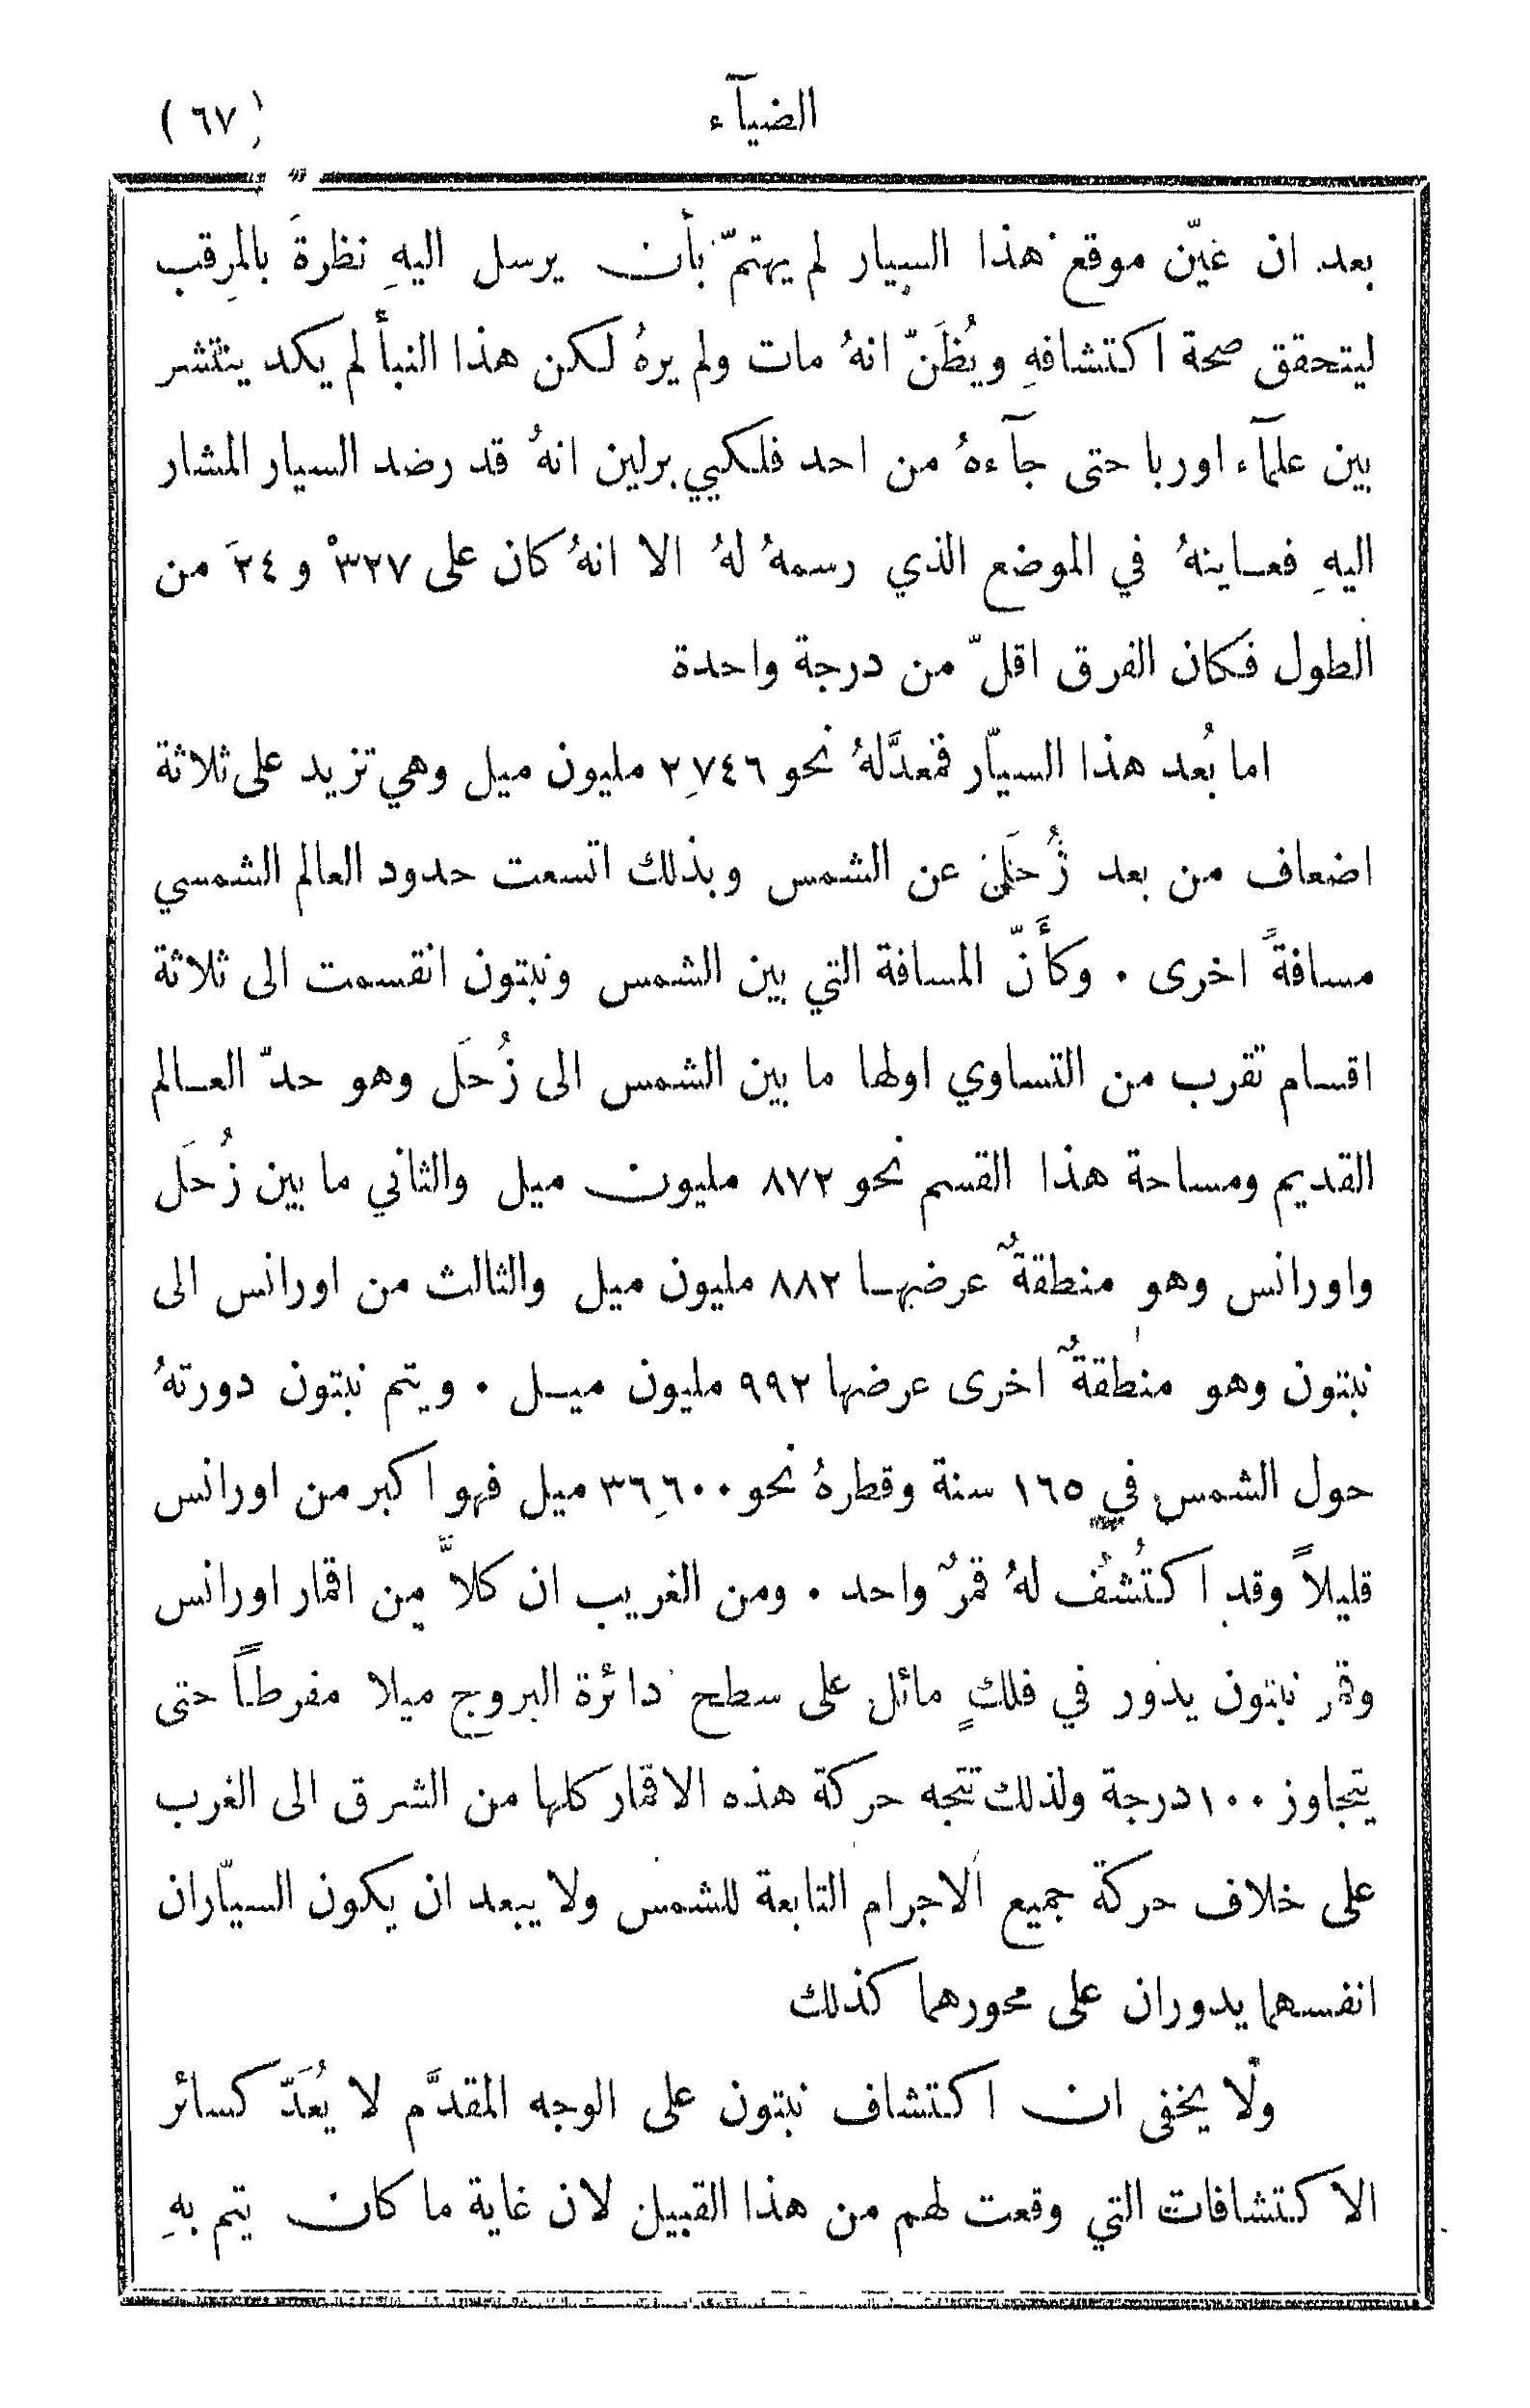 الضيآء
(٦٧)
بعد ان عيّن موقع هذا السيار لم يهتمّ بأن يرسل اليهِ نظرةً بالمِرقب
ليتحقق صحة اكتشافهِ ويُظَنّ انهُ مات ولم يرهُ لكن هذا النبأ لم يكد ينتشر
بين علمآء اوربا حتى جآءهُ من احد فلكيي برلين انهُ قد رصد السيار المشار
اليهِ فعاينهُ في الموضع الذي رسمهُ لهُ الا انهُ كان على ٣٢٧° و ٢٤َ من
الطول فكان الفرق اقلّ من درجة واحدة
اما بُعد هذا السيّار فمعدَّلهُ نحو ٢,٧٤٦ مليون ميل وهي تزيد على ثلاثة
اضعاف من بعد زُحَل عن الشمس وبذلك اتسعت حدود العالم الشمسي
مسافةً اخرى ٠ وكأَنّ المسافة التي بين الشمس ونبتون انقسمت الى ثلاثة
اقسام تقرب من التساوي اولها ما بين الشمس الى زُحَل وهو حدّ العالم
القديم ومساحة هذا القسم نحو ٨٧٢ مليون ميل والثاني ما بين زُحَل
واورانس وهو منطقةٌ عرضها ٨٨٢ مليون ميل والثالث من اورانس الى
نبتون وهو منطقةٌ اخرى عرضها ٩٩٢ مليون ميل ٠ ويتم نبتون دورتهُ
حول الشمس في ١٦٥ سنة وقطرهُ نحو ٣٦,٦٠٠ ميل فهو اكبر من اورانس
قليلاً وقد اكتُشف لهُ قمرٌ واحد ٠ ومن الغريب ان كلاًّ من اقمار اورانس
وقمر نبتون يدور في فلكٍ مائل على سطح دائرة البروج ميلا مفرطاً حتى
يتجاوز ١٠٠ درجة ولذلك تتجه حركة هذه الاقمار كلها من الشرق الى الغرب
على خلاف حركة جميع الاجرام التابعة للشمس ولا يبعد ان يكون السيّاران
انفسهما يدوران على محورهما كذلك
ولا يخفى ان اكتشاف نبتون على الوجه المقدَّم لا يُعَدّ كسائر
الاكتشافات التي وقعت لهم من هذا القبيل لان غاية ما كان يتم بهِ